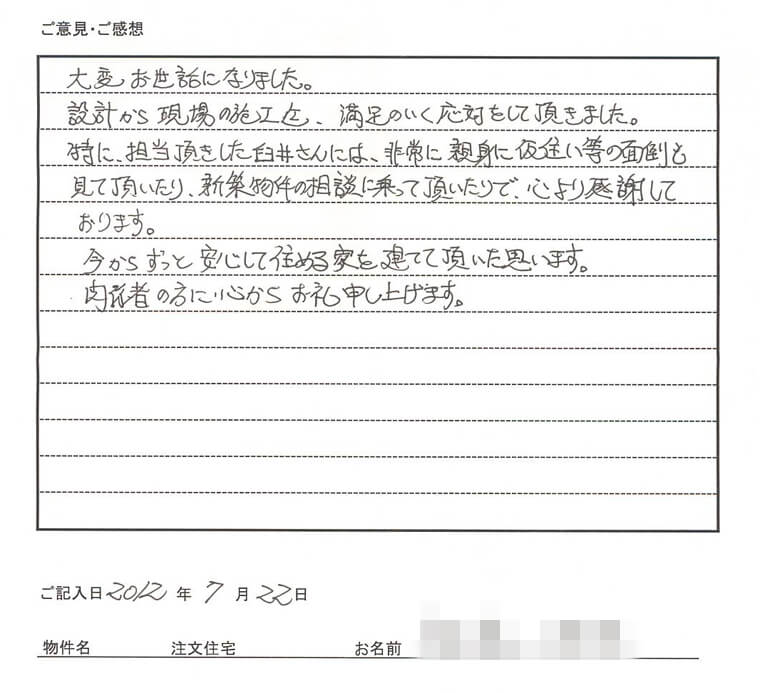 ご意見・ご感想
大変お世話になりました。
設計から現場の施工迄、満足のいく応対をして頂きました。
特に、担当頂きした臼井さんには、非常に親身に仮住い等の面倒も
見て頂いたり、新築物件の相談に乗って頂いたりで、心より感謝して
おります。
今からずっと安心して住める家を建てて頂いた思います。
関係者の方に心からお礼申し上げます。
ご記入日 2012 年 7 月 22 日
物件名 注文住宅 お名前